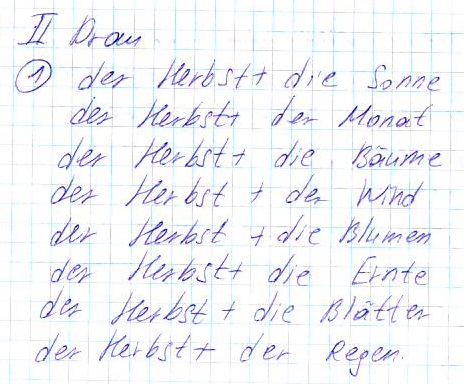 II Этап
① der Herbst + die Sonne
der Herbst + der Monat
der Herbst + die Bäume
der Herbst + der Wind
der Herbst + die Blumen
der Herbst + die Ernte
der Herbst + die Blätter
der Herbst + der Regen.